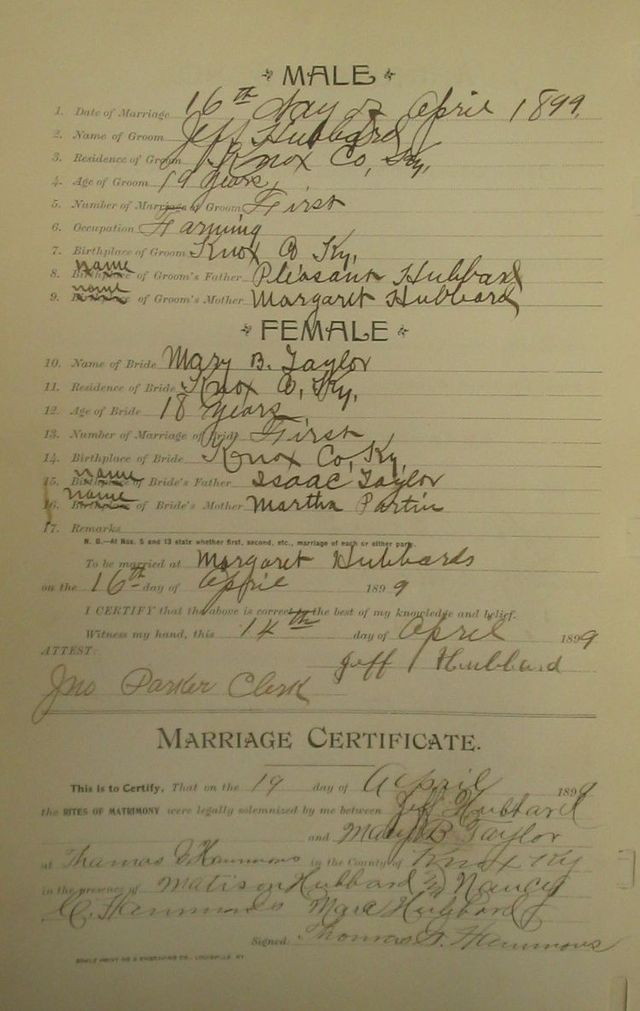 MALE
1. Date of Marriage 16th day of April 1899.
2. Name of Groom Jeff Hubbard
3. Residence of Groom Knox Co, Ky,
4. Age of Groom 19 years,
5. Number of Marriage of Groom First
6. Occupation Farming
7. Birthplace of Groom Knox Co Ky,
8. Birthplace name of Groom's Father Pleasant Hubbard
9. name of Groom's Mother Margaret Hubbard
FEMALE
10. Name of Bride Mary B. Taylor
11. Residence of Bride Knox Co, Ky,
12. Age of Bride 18 years
13. Number of Marriage of Bride First
14. Birthplace of Bride Knox Co, Ky,
15. Birthplace name of Bride's Father Isaac Taylor
16. Birthplace name of Bride's Mother Martha Partin
17. Remarks
N. B.—At Nos. 5 and 13 state whether first, second, etc., marriage of each or either party.
To be married at Margaret Hubbards
on the 16th day of April 1899
I CERTIFY that the above is correct to the best of my knowledge and belief.
Witness my hand, this 14th day of April 1899
ATTEST: Jeff Hubbard
Jno Parker Clerk
MARRIAGE CERTIFICATE.
This is to Certify, That on the 19 day of April 1899
the RITES OF MATRIMONY were legally solemnized by me between Jeff Hubbard
and Mary B Taylor
at Thomas Hammons in the County of Knox Ky
in the presence of Matison Hubbard Nancy
C. Hammons Hubbard
Signed: Thomas Hammons